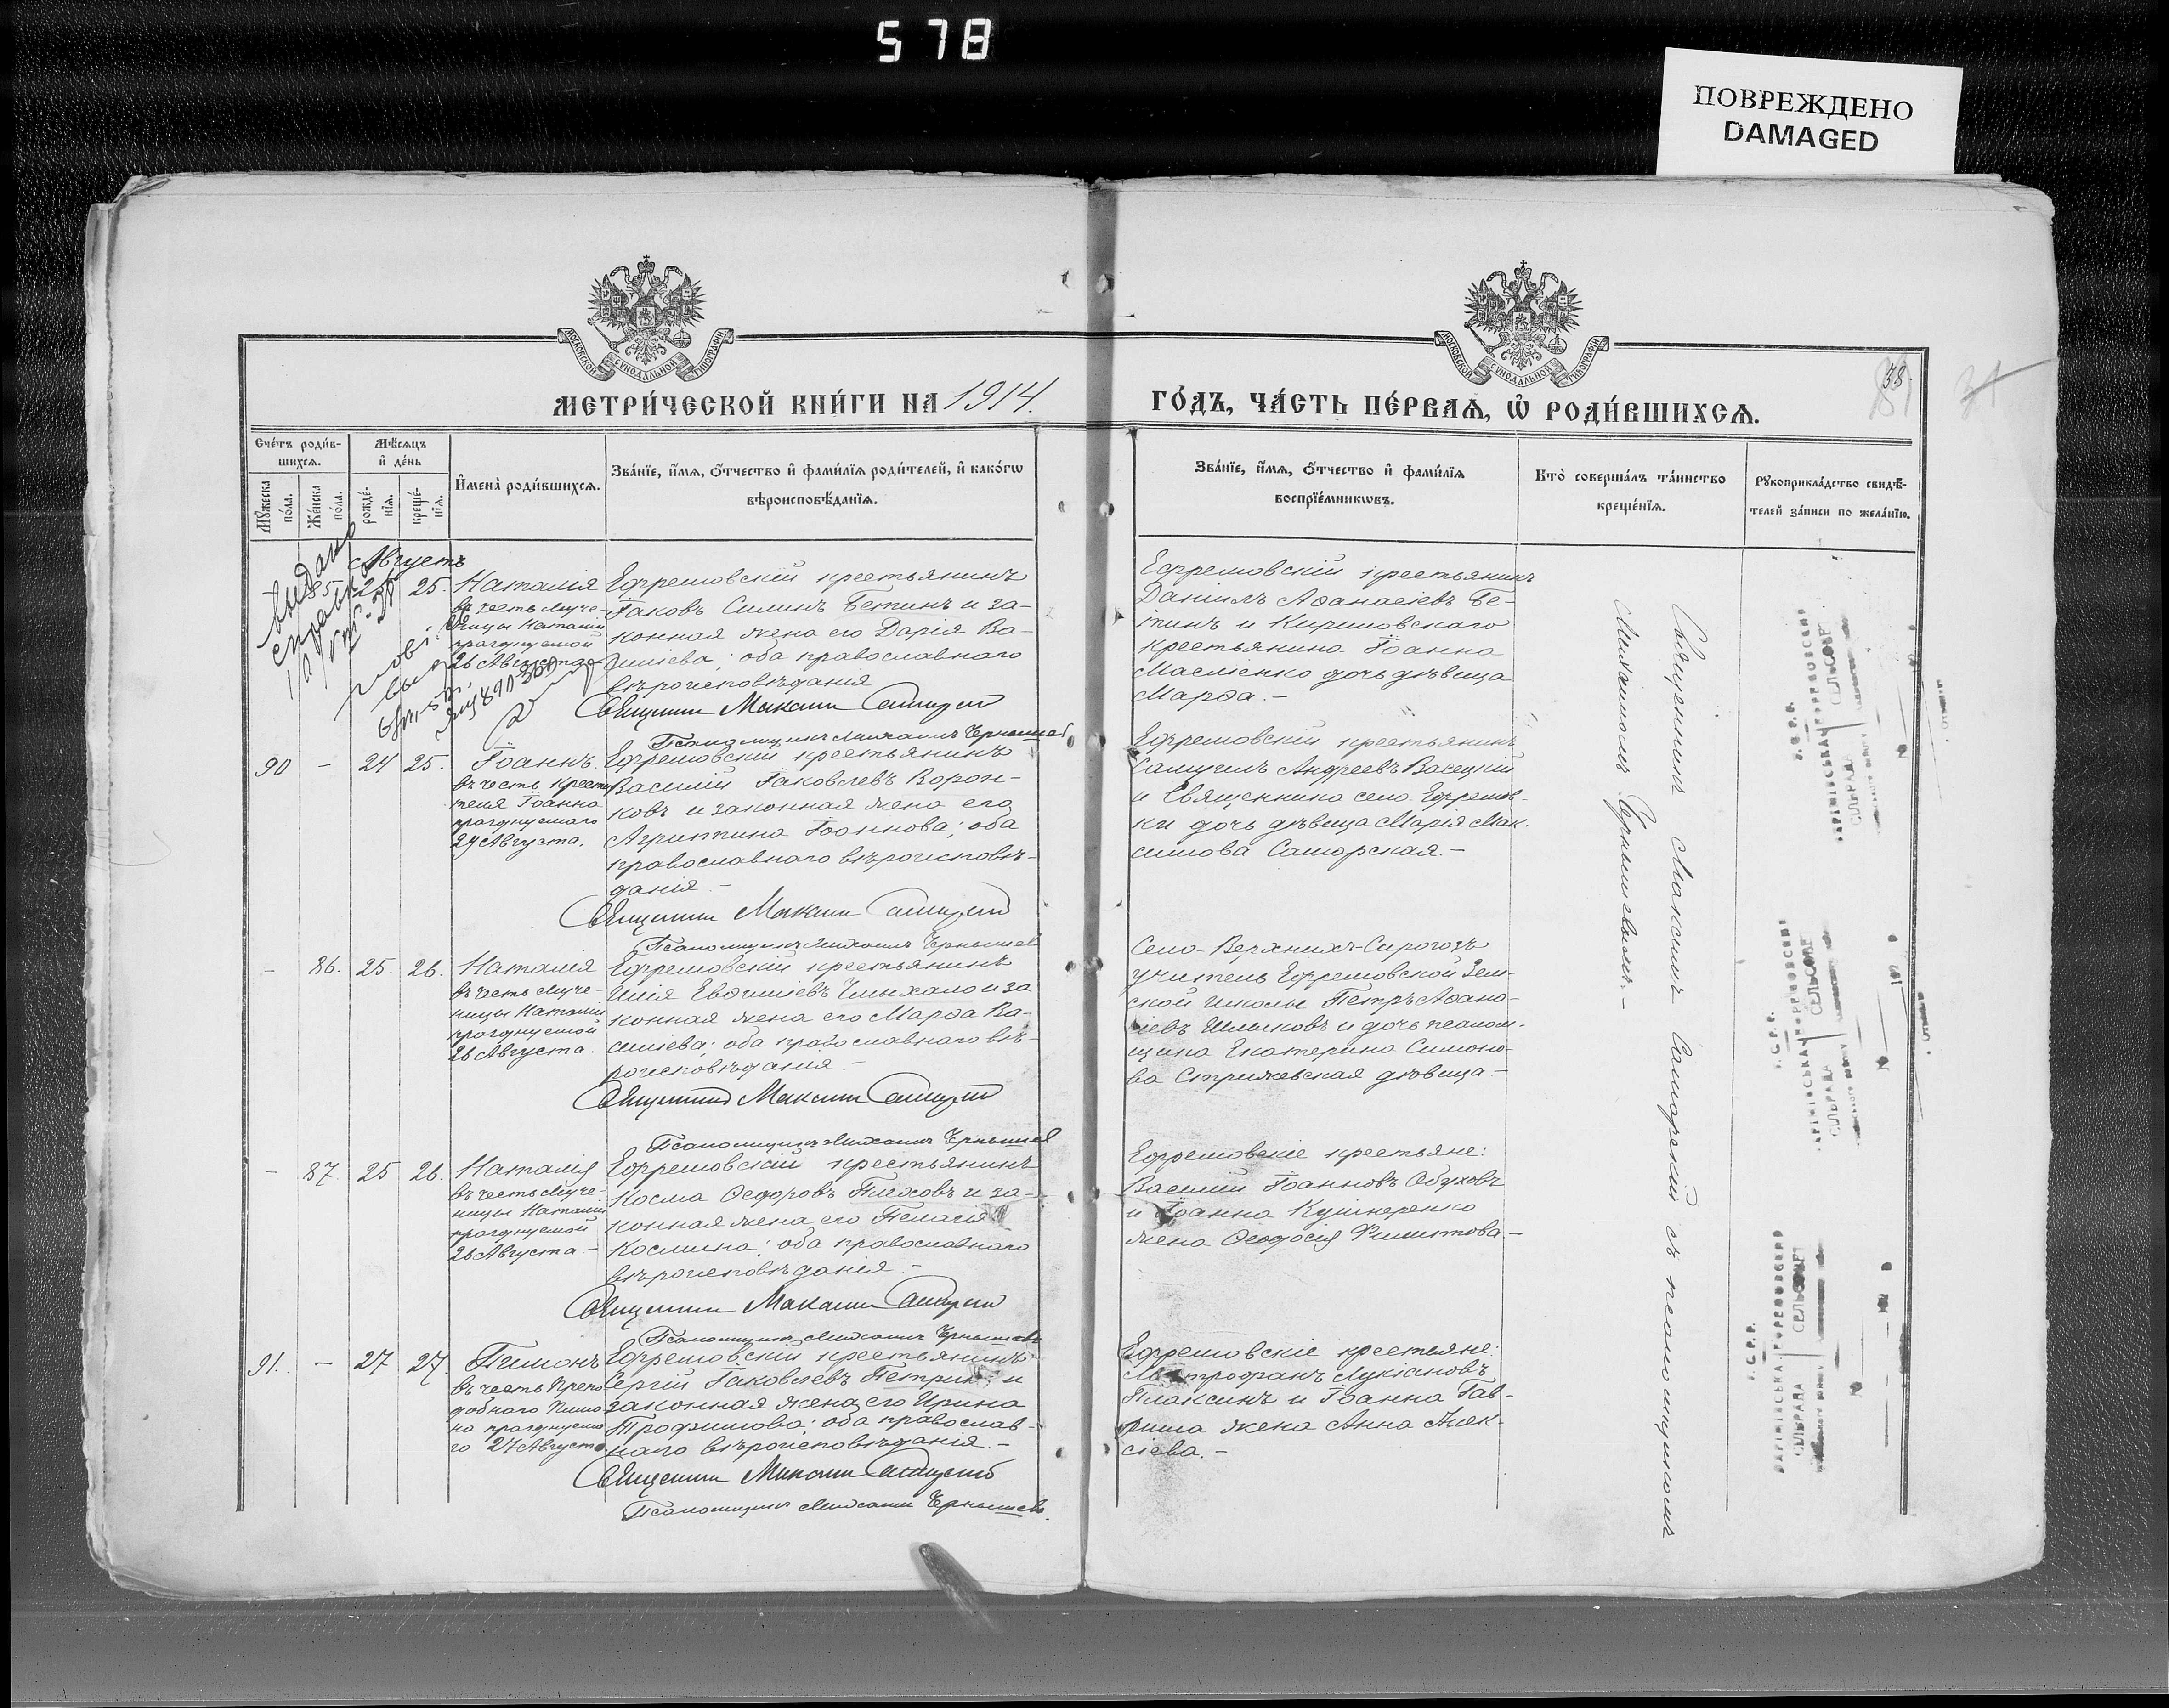 578
ПОВРЕЖДЕНО
DAMAGED
МЕТРИ́ЧЕСКОЙ КНИ́ГИ НА 1914.
ГО́ДЪ, ЧА́СТЬ ПЕ́РВАѦ, Ѡ҆ РОДИ́ВШИХСѦ.
38.
Сче́тъ роди́в-
шихсѧ.
Мѣ́сѧцъ
и҆ де́нь
Мꙋ́жеска
по́ла.
Же́нска
по́ла.
рожде́-
нїѧ.
креще́-
нїѧ.
И҆мена̀ роди́вшихсѧ.
Зва́нїе, и҆́мѧ, ѻ҆́тчество и҆ фами́лїѧ роди́телей, и҆ како́гѡ
вѣроисповѣ́данїѧ.
Зва́нїе, и҆́мѧ, ѻ҆́тчество и҆ фами́лїѧ
воспрїе́мникѡвъ.
Кто̀ соверша́лъ та́инство
креще́нїѧ.
Рꙋкоприкла́дство свидѣ́-
телей за́писи по жела́нїю.
Августъ
85 24 25. Наталія
въ честь муче-
ницы Наталіи
празднуемой
26 Августа
Ефремовскій крестьянинъ
Іаковъ Силинъ Бетинъ и за-
конная жена его Дарія Ва-
силіева; оба православнаго
вѣроисповѣданія
Священникъ Максимъ Самарскій
Псаломщикъ Михаилъ Чернышев
Ефремовскій крестьянинъ
Даніилъ Аѳанасіевъ Бе-
тинъ и Кириловскаго
крестьянина Іоанна
Масліенко дочь дѣвица
Марѳа. -
90 - 24 25. Іоаннъ
въ честь Крести
теля Іоанна
празднуемаго
29 Августа.
Ефремовскій крестьянинъ
Василій Іаковлевъ Ворон-
ковъ и законная жена его
Агриппина Іоаннова; оба
православнаго вѣроисповѣ-
данія. -
Священникъ Максимъ Самарскій
Псаломщикъ Михаилъ Чернышев
Ефремовскій крестьянинъ
Самуилъ Андреевъ Васецкій
и Священника села Ефремов-
ки дочь дѣвица Марія Мак-
симова Самарская. -
- 86. 25. 26. Наталія
въ честь муче-
ницы Наталіи
празднуемой
26 Августа.
Ефремовскій крестьянинъ
Илія Евѳиміевъ Чмыхало и за
конная жена его Марѳа Ва-
силіева; оба православнаго вѣ-
роисповѣданія. -
Священникъ Максимъ Самарскій
Псаломщикъ Михаилъ Чернышев
Село-Верхнихъ-Сирогозъ
учитель Ефремовской Зем-
ской школы Петръ Аѳана-
сіевъ Шишковъ и дочь псалом-
щика Екатерина Симоно-
ва Стрижевская дѣвица -
- 87. 25 26. Наталія
въ честь муче-
ницы Наталіи
празднуемой
26 Августа. -
Ефремовскій крестьянинъ
Косма Ѳеодоровъ Пиховъ и за-
конная жена его Пелагія
Космина; оба православнаго
вѣроисповѣданія. -
Священникъ Максимъ Самарскій
Псаломщикъ Михаилъ Чернышев
Ефремовскіе крестьяне:
Василій Іоанновъ Обуховъ
и Іоанна Кушнеренко
жена Ѳеодосія Филиппова -
91. - 27 27. Пименъ
въ честь Препо
добнаго Пиме
на празднуема
го 27 Августа.
Ефремовскій крестьянинъ
Сергій Іаковлевъ Петрикъ и
законная жена его Ирина
Трофимова; оба православ-
наго вѣроисповѣданія. -
Священникъ Максимъ Самарскій
Псаломщикъ Михаилъ Чернышевъ.
Ефремовскіе крестьяне:
Митрофанъ Лукіановъ
Плаксинъ и Іоанна Гав-
риша жена Анна Алек-
сіева. -
Священникъ Максимъ Самарскій съ псаломщикомъ
Михаиломъ Чернышевымъ. -